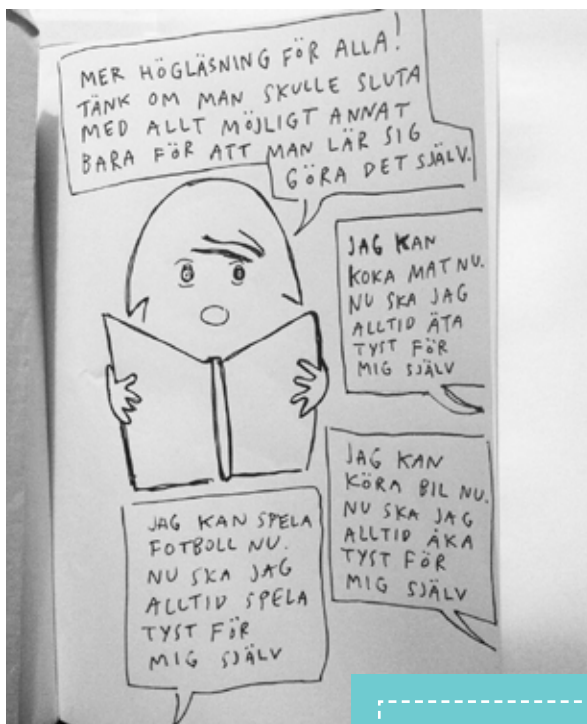 MER HÖGLÄSNING FÖR ALLA!
TÄNK OM MAN SKULLE SLUTA
MED ALLT MÖJLIGT ANNAT
BARA FÖR ATT MAN LÄR SIG
GÖRA DET SJÄLV.
JAG KAN
KOKA MAT NU.
NU SKA JAG
ALLTID ÄTA
TYST FÖR
MIG SJÄLV
JAG KAN
KÖRA BIL NU.
NU SKA JAG
ALLTID ÅKA
TYST FÖR
MIG SJÄLV
JAG KAN SPELA
FOTBOLL NU.
NU SKA JAG
ALLTID SPELA
TYST FÖR
MIG SJÄLV